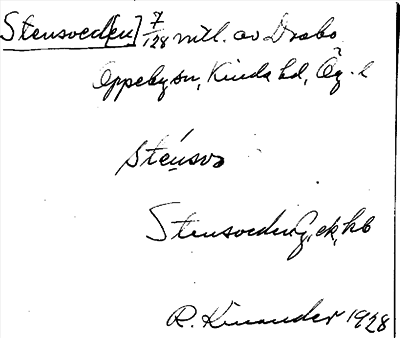 Stensved[en] 7/128 mtl. av Drabo
Oppeby sn, Kinda hd, Ög. l
Sténsvə
Stensveden G, ek, hb
R. Kinander 1928